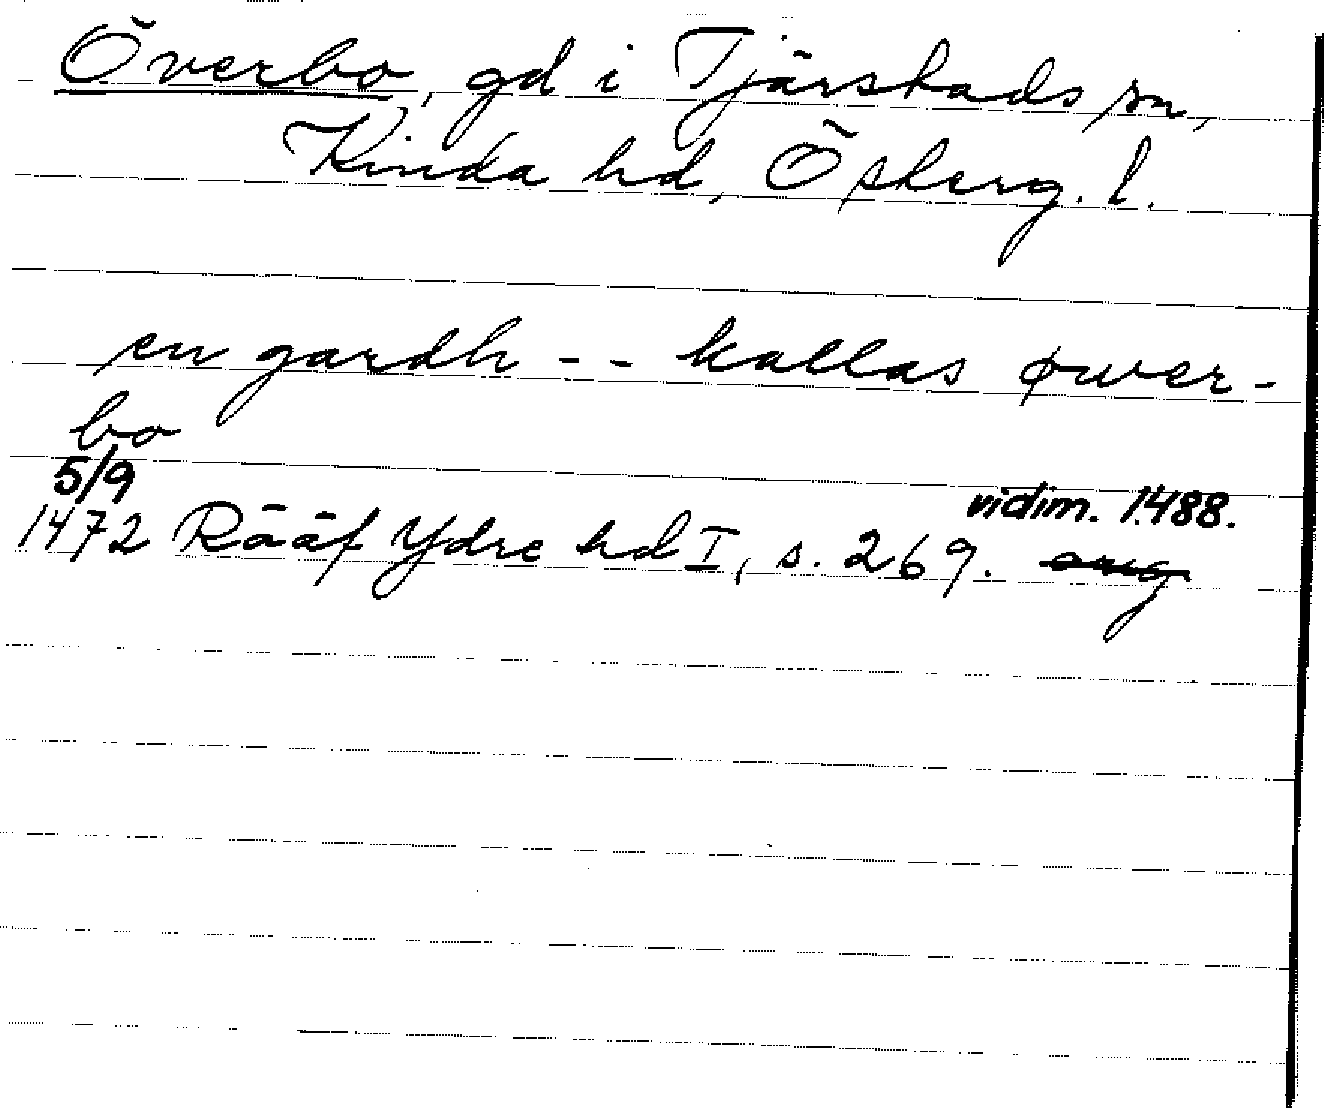 Överbo, gd i Tjärstads sn,
Kinda hd, Österg. l.
en gardh - - kallas øwer-
bo
5/9
vidim. 1488.
1472 Rääf Ydre hd I, s. 269. orig